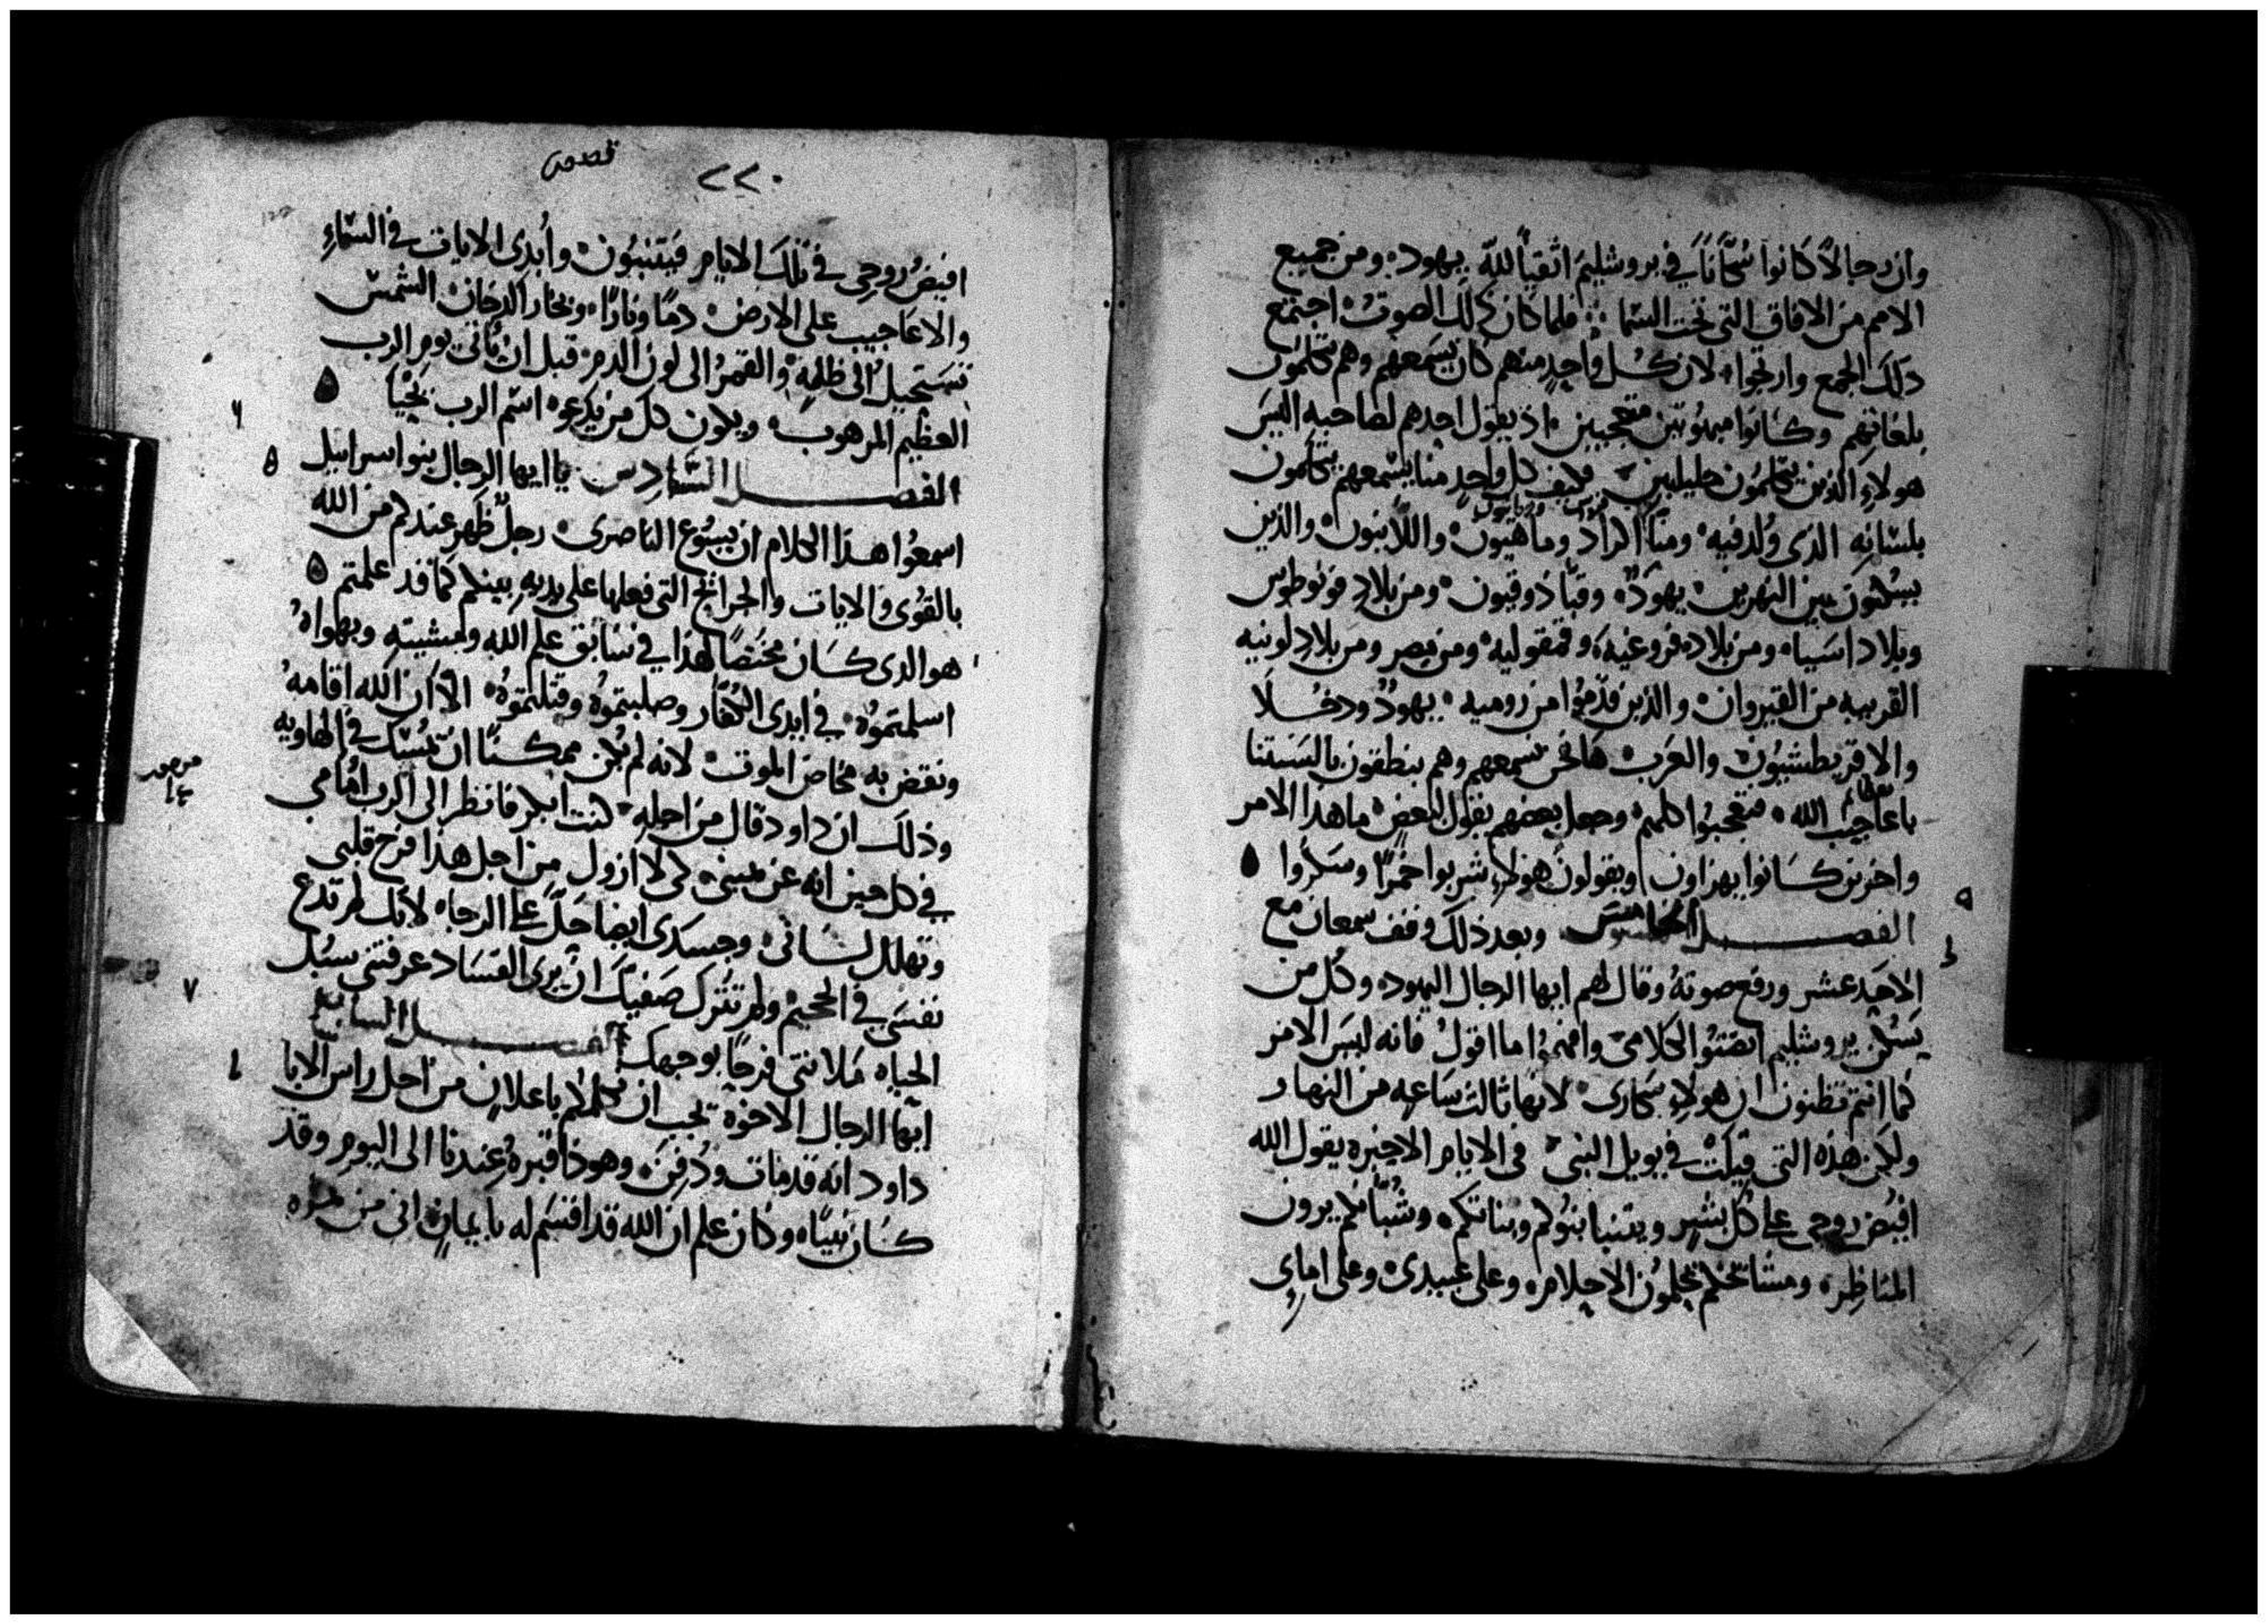 وان رجالاً كانوا سُكّاناً في يروشليمَ اتقيآ لله يهود ومن جميع
الامم من الافاق التى تحت السّما فلما كان ذلك الصوتُ اجتمع
ذلك الجمع وارتجوا لان كُل واحدٍ منهم كان يسَمعهم وهم يتكلمون
بلغاتهم وكانوا مبهوتين متعجبين اذ يقول احدهم لصاحبه اليسَ
هولاءِ الذين يتكلمُون جليليين فكيف كل واحدٍ منا يسّمعهم يتكلمون
بلسّانِه الذى وُلد فيه ومنّا اكراد وماهيون واللآنيون والذين
يسُكنون بين النهرين يهودٌ وقبّاذوقيون ومن بلادِ فونوطوس
وبلاد اسَيا ومن بلاد فروغيه وفمقوليه ومن مصر ومن بلادِ لونيه
القريبه من القيروان والذين قدّموا من روميه يهودٌ ودخُلَا
والاقريطشيون والعرَب هانحن نسمعهم وهم ينطقون بالسنتنا
باعاجيبِ الله فتعجبوا كلهم وجعل بعضهم يقول لبعضٍ ما هذا الامر
واخرين كانوا يهزاون ويقولون هولاءِ شربوا خمرًا وسَكروا
٩
الفصل الخامس وبعد ذلك وقف سمعان مع
الاحَد عشر ورفع صوتهُ وقال لهم ايها الرجال اليهود وكل من
يَسْكن يروشليم انصتوا لكلامى وافهمُوا ما اقولُ فانه ليسَ الامر
كما انتم تظنون ان هولاءِ سَكارى لانها ثالث ساعه من النهار
ولكن هذه التى قيلت في يويل النبى فى الايام الاخيره يقول الله
افيض روحى على كُل بشرٍ ويتنبا بنُوكم وبناتكم وشُبّانكم يرون
المناظر ومشائخكم يحلمون الاحلام وعلى عبيدى وعلى امايِ
٢٢٠
افيضُ روحِى في تلك الايام فيتنبئون وأُبدِى الايات في السّماءِ
والاعاجيب على الارض دمًا ونارًا وبخار الدخان الشمسُ
تسَتحيلُ الى ظلمةٍ والقمرُ الى لون الدمِ قبل ان يُاتى يوم الرب
العظيم المرهوب ويكون كل من يدعو اسّم الرب يَحْيَا
٦
الفصل السّادِس يا ايها الرجال بنوا اسراىيل
اسمعُوا هذا الكلام ان يسُوع الناصرى رجلٌ ظهر عندكم من الله
بالقُوى والايات والجرائح التى فعلها على يديهِ بينكم كما قد علمتم
هو الذى كان مختصًا لهذا في سَابق علم الله ومشيته وبهواهُ
اسلمتموُه في ايدى الكُفّار وصلبتموُه وقتلتموُه الآ ان الله اقامهُ
ونقض به مخاض الموت لانه لم يكن ممكنًا ان تمُسَك في الهاويه
وذلك ان داود قال من اجلهِ كنت ابكر فانظر الى الرب امامي
في كل حين انه عن يمينى كى لا ازول من اجل هذا فرح قلبى
وتهلل لسَانى وجسَدى ايضا حَلّ على الرجا لانك لم تدع
نفسَي في الجحيم ولم تترك صَفيّك ان يَرى الفسَاد عرفتنى سبُل
٧
الحياه مَلاتنى فرحًا بوجهك الفصل السابع
ايها الرجال الاخوة يجب ان نكلمكم باعلانٍ من اجل راس الابا
داود انه قد مات ودُفِنَ وهوذا قبرهُ عِندنا الى اليوم وقد
كان نبيًا وكان علم ان الله قد اقسَم له بايمانٍ انى من